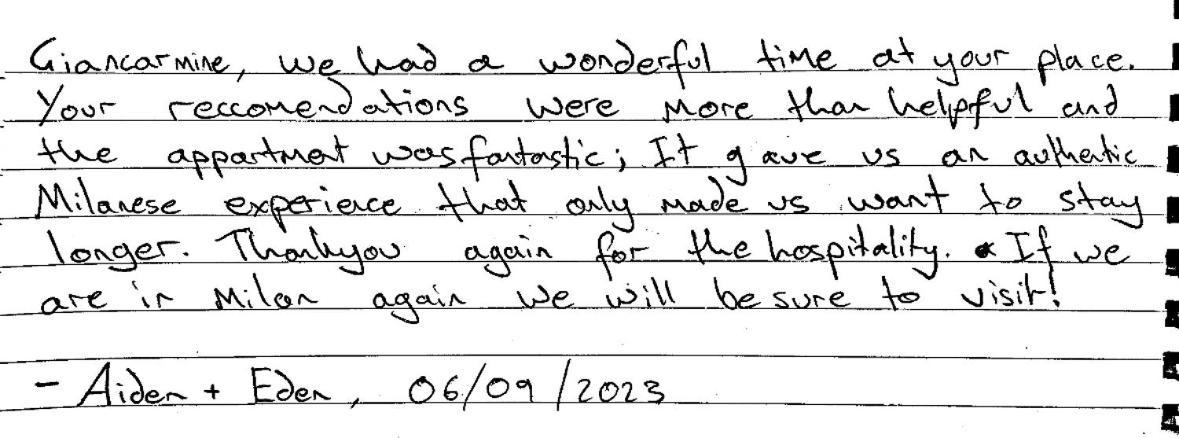 Giancarmine, we had a wonderful time at your place.
Your reccomendations were more than helpful and
the appartment was fantastic; It gave us an authentic
Milanese experience that only made us want to stay
longer. Thankyou again for the hospitality. If we
are in Milan again we will be sure to visit!
- Aiden + Eden, 06/09/2023